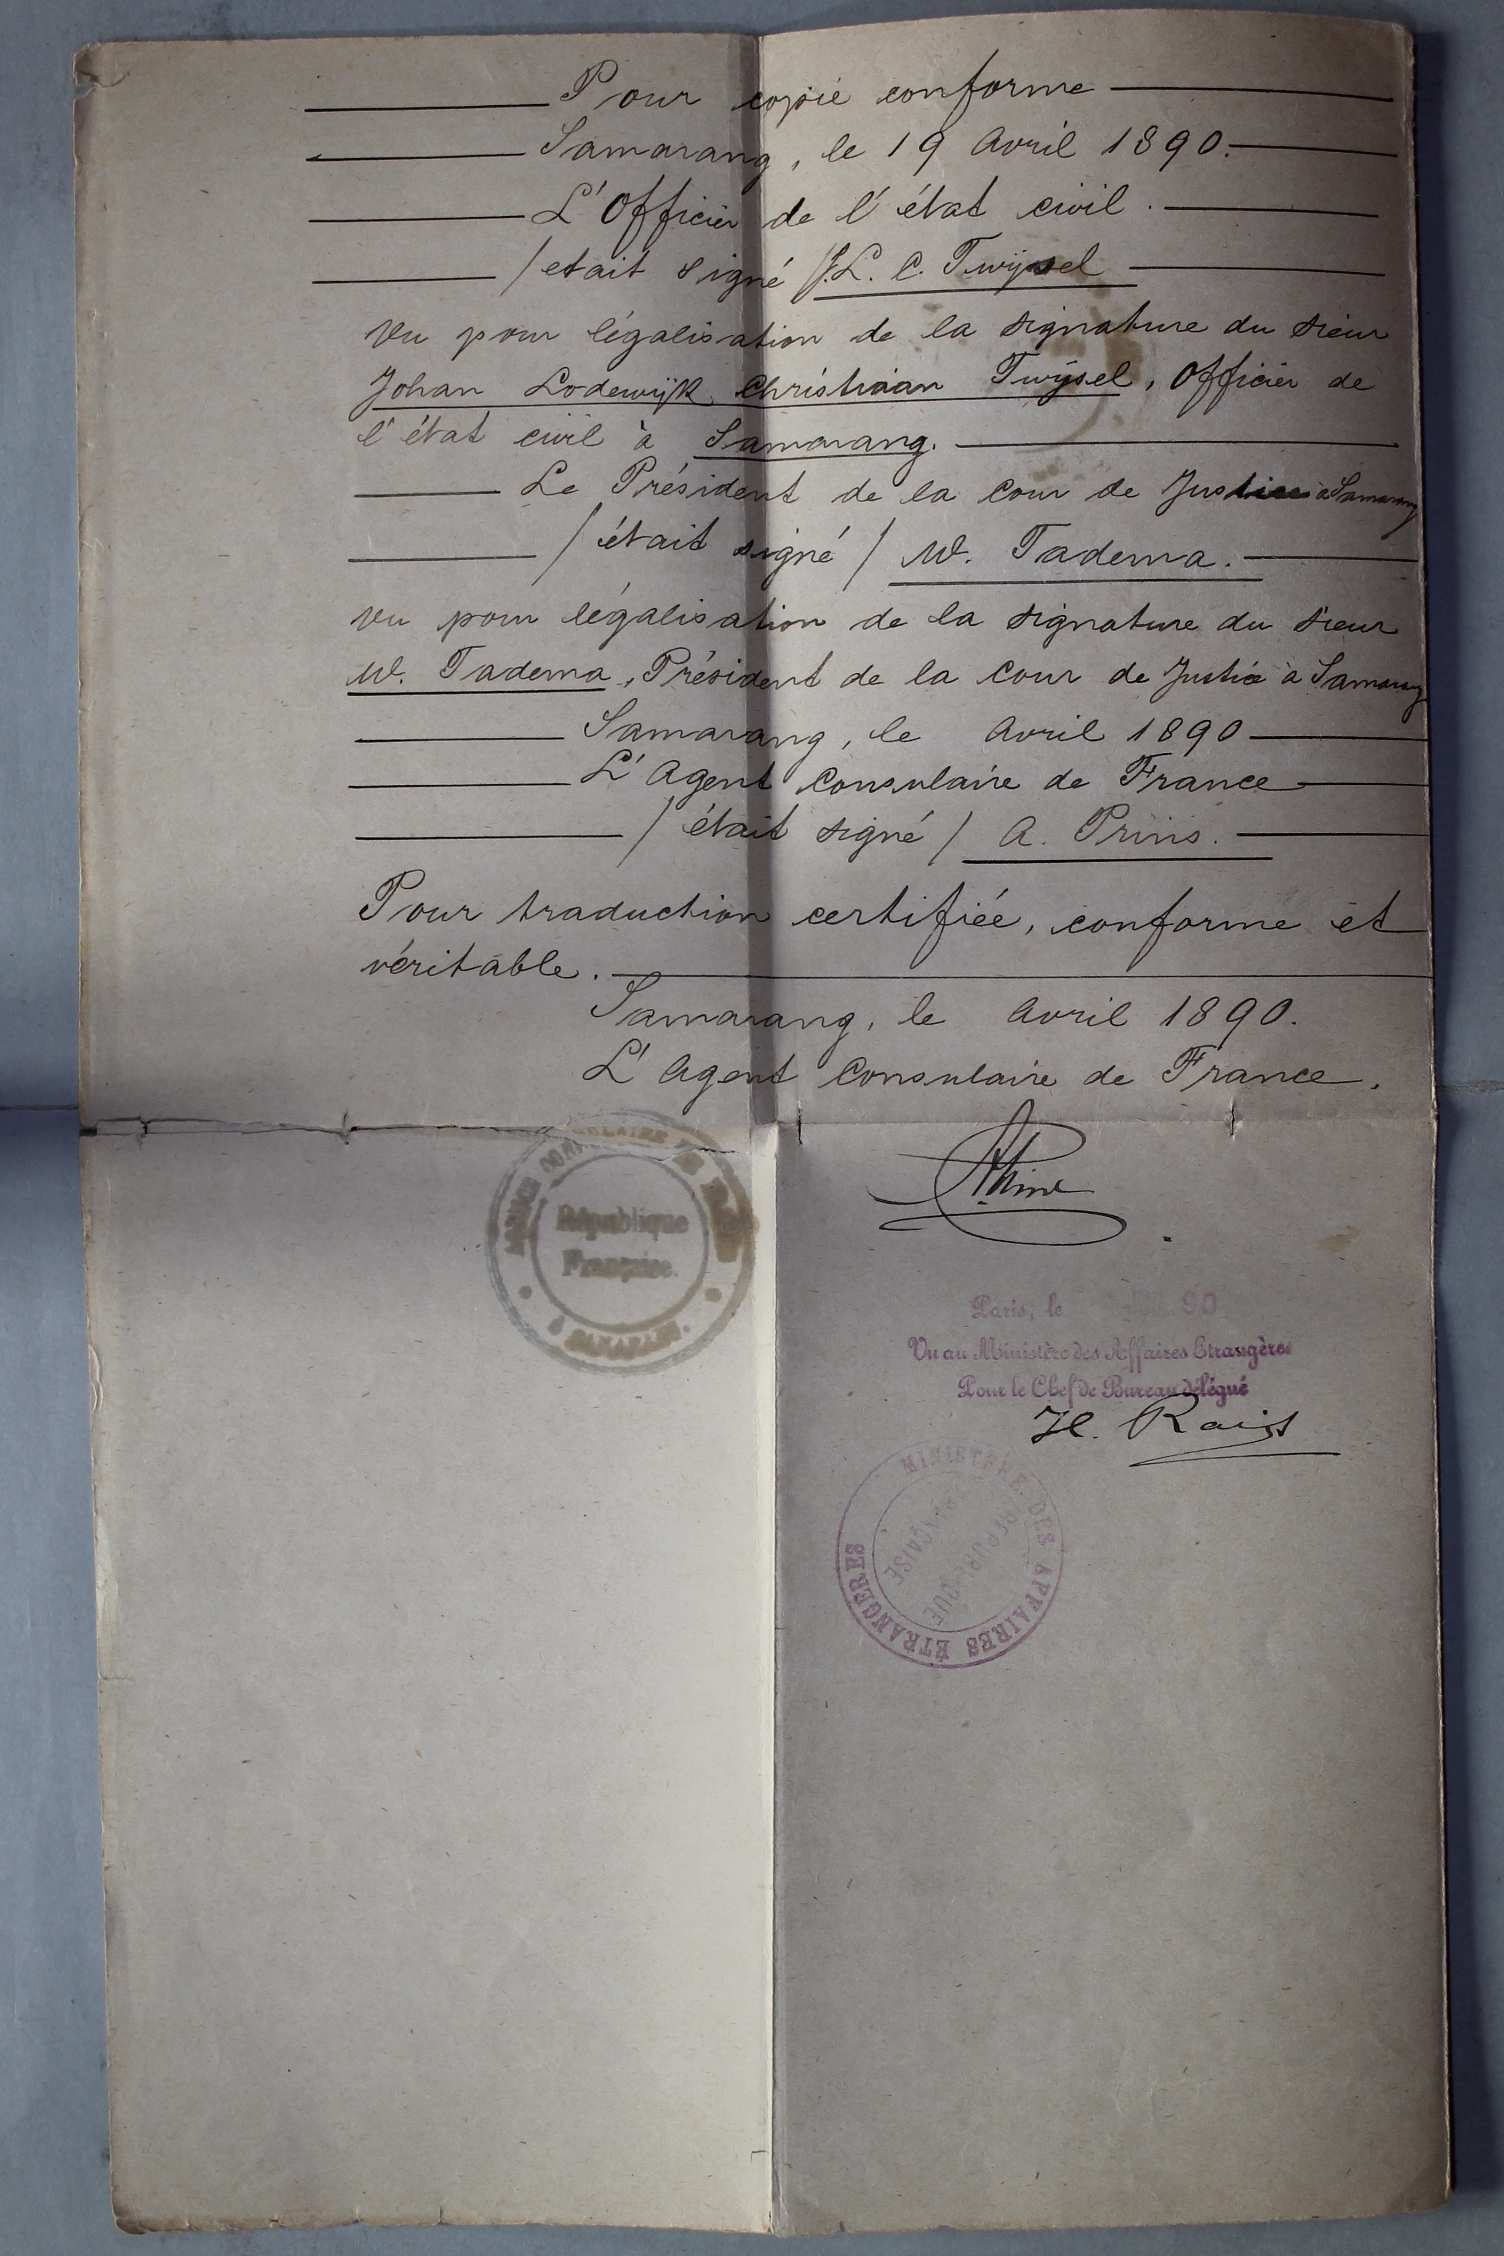 Pour copie conforme
Samarang, le 19 Avril 1890.
L'Officier de l'état civil.
/etait signé/ J. L. C. Twijsel
Vu pour légalisation de la signature du sieur
Johan Lodewijk Christiaan Twijsel, Officier de
l'état civil à Samarang.
Le Président de la Cour de Justice à Samarang
/était signé/ W. Tadema.
Vu pour légalisation de la signature du sieur
W. Tadema, Président de la Cour de Justice à Samarang
Samarang, le Avril 1890
L'Agent Consulaire de France
/était signé/ A. Prins.
Pour traduction certifiée, conforme et
véritable.
Samarang, le Avril 1890.
L'Agent Consulaire de France.
AGENCE CONSULAIRE DE FRANCE
République
Française.
À SAMARANG.
A. Prins
Paris, le 90
Vu au Ministère des Affaires Etrangères
Pour le Chef de Bureau délégué
H.
MINISTÈRE DES AFFAIRES ÉTRANGÈRES
RÉPUBLIQUE
FRANÇAISE